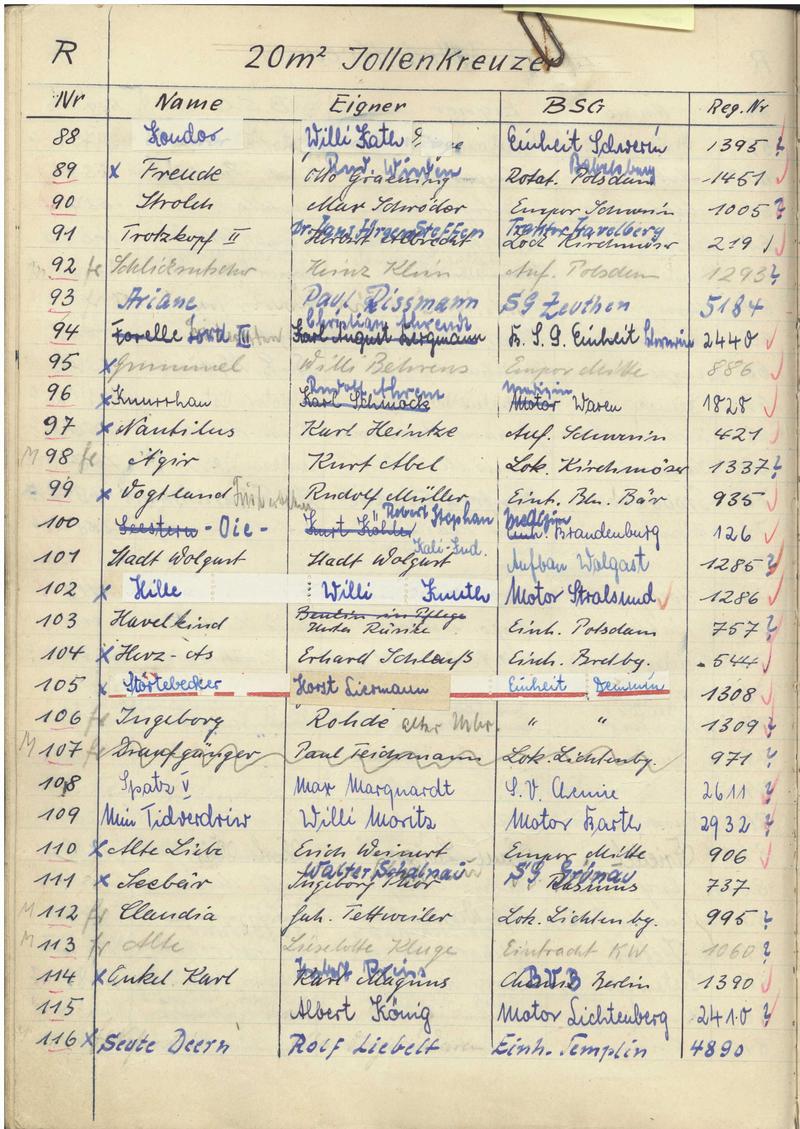 R 20m² Jollenkreuzer
Nr Name Eigner BSG Reg. Nr
88 Kondor Willi Kath Einheit Schwerin 1395 ?
89 x Freude Otto Rotat. Potsdam Babelsberg 1451
90 Strolch Max Schröder Empor Schwerin 1005 ?
91 Trotzkopf II Dr. Hans Jürgen Steffen Traktor Havelberg Lock Kirchmöser 219
92 fe Heinz Klein Auf. Potsdam 1293 ?
93 Ariane Paul Rissmann SG Zeuthen 5184
94 Forelle Christian Ahrende Karl August Bergmann B. S. G. Einheit Schwerin 2440
95 x Grummel Willi Behrens Empor Mitte 886
96 x Knurrhan Rudolf Ahrens Karl Schmock Medizin Motor Waren 1828
97 x Nautilus Karl Heintze Auf. Schwerin 421
M 98 fe Ägir Kurt Abel Lok. Kirchmöser 1337 ?
99 x Vogtland Rudolf Müller Einh. Bln. Bär 935
100 Seestern - Oie - Kurt Köhler Robert Stephan Medizin Einh. Brandenburg 126
101 Stadt Wolgast Stadt Wolgast Aufbau Wolgast 1285 ?
102 x Hille Willi Kmuth Motor Stralsund 1286
103 Havelkind Einh. Potsdam 757 ?
104 x Herz-As Erhard Schleuß Einh. Brdbg. 544
105 x Störtebecker Horst Liermann Einheit Demmin 1308
106 fe Ingeborg Rohde alter " " 1309 ?
M 107 fe Draufgänger Paul Teichmann Lok. Lichtenbg. 971 ?
108 Spatz V Max Marquardt S. V. Chemie 2611 ?
109 Min Tidverdriw Willi Moritz Motor Barth 2932 ?
110 x Alte Liebe Erich Weinert Empor Mitte 906
111 x Seebär Walter Ingeborg Thor SG Grünau Rasmus 737
M 112 fr Claudia Joh. Tettweiler Lok. Lichtenbg. 995 ?
M 113 fr Alte Lieselotte Kluge Eintracht KW 1060 ?
114 x Onkel Karl Karl Magnus BVB Berlin 1390
115 Albert König Motor Lichtenberg 2410 ?
116 x Seute Deern Rolf Liebelt Einh. Templin 4890